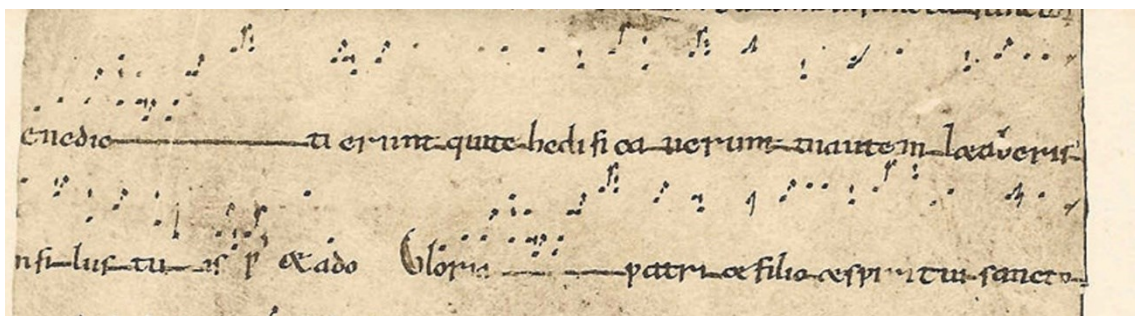 enedic ti erunt quite hedifi ca uerunt tuautem læta veris
n fi lus tu is p & ado Gloria patri & filio & spiritui sancto